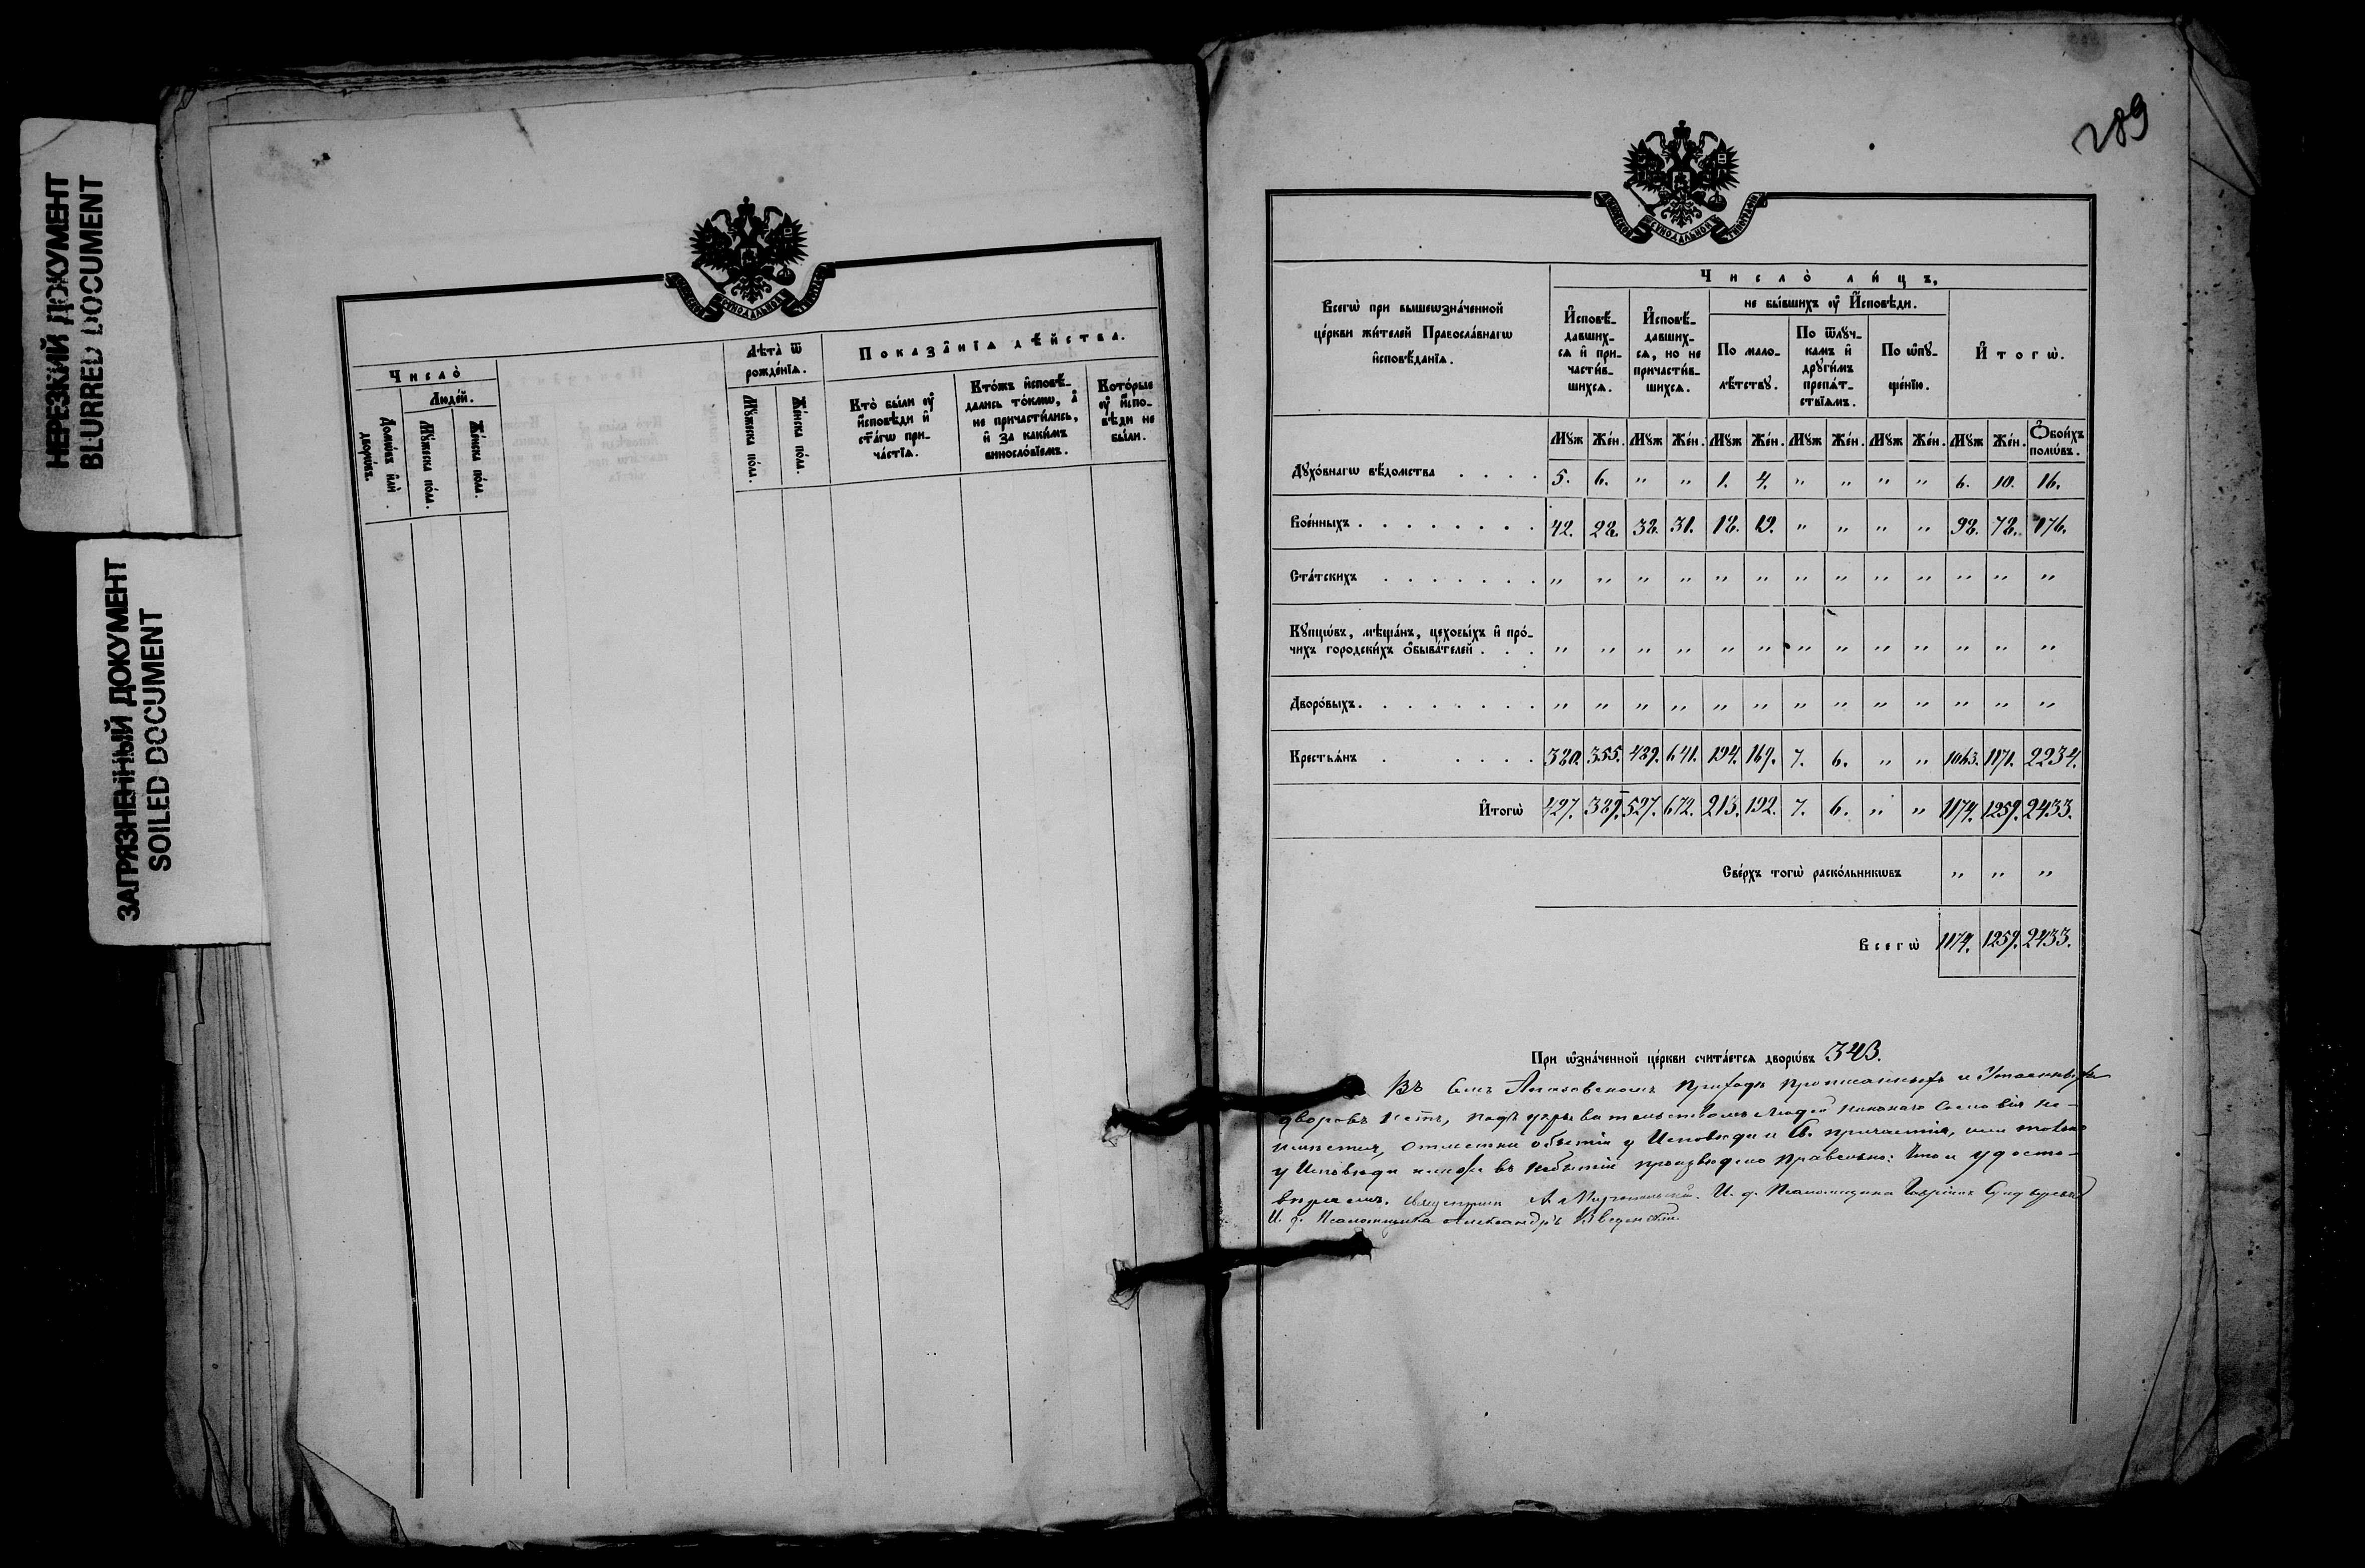 НЕРЕЗКИЙ ДОКУМЕНТ
BLURRED DOCUMENT
ЗАГРЯЗНЕННЫЙ ДОКУМЕНТ
SOILED DOCUMENT
Число̀
Люде́й.
Домѡ́въ и҆лѝ дворѡ́въ.
Мꙋ́жеска по́ла.
Же́нска по́ла.
Лѣта̀ ѿ рожде́нїѧ.
Мꙋ́жеска по́ла.
Же́нска по́ла.
Показа̑нїѧ дѣ́йства.
Кто̀ бы́ли ᲂу҆ и҆сповѣди и҆ ст҃а́гѡ прича́стїѧ.
Кто́жъ и҆сповѣ́дались то́кмѡ, а҆ не причасти́лись, и҆ за каки́мъ виносло́вїемъ.
Кото́рые ᲂу҆ и҆сповѣди не бы́ли.
289
СѴНОДАЛЬНОЙ
Всегѡ̀ при вышеѡзна́ченной
це́ркви жи́телей Правосла́внагѡ
и҆сповѣ́данїѧ.
Число̀ ли́цъ,
И҆сповѣ́давшихсѧ и҆ причасти́вшихсѧ.
И҆сповѣ́давшихсѧ, но не причасти́вшихсѧ.
не бы́вшихъ ᲂу҆ И҆сповѣди.
По мало-лѣ́тствꙋ.
По ѿлꙋ́чкамъ и҆ дрꙋги́мъ препѧ́тствїѧмъ.
По ѡ҆пꙋще́нїю.
И҆тогѡ̀.
Мꙋж Же́н. Мꙋж Же́н. Мꙋж Же́н. Мꙋж Же́н. Мꙋж Же́н. Мꙋж Же́н. Ѻ҆бои́хъ поло́въ.
Дꙋхо́внагѡ вѣ́домства . . . . 5. 6. " " 1. 4. " " " " 6. 10. 16.
Вое́нныхъ . . . . . . . 42. 28. 38. 31. 18. 19. " " " " 98. 78. 176.
Ста́тскихъ . . . . . . . " " " " " " " " " " " " "
Кꙋпцѡ́въ, мѣща́нъ, цеховы́хъ и҆ про́-
чихъ городски́хъ ѻ҆быва́телей . . . " " " " " " " " " " " " "
Дворо́выхъ . . . . . . . " " " " " " " " " " " " "
Крестьѧ́нъ . . . . . 380. 355. 489. 641. 194. 169. 7. 6. " " 1063. 1171. 2234.
И҆тогѡ̀ 427. 389. 527. 672. 213. 192. 7. 6. " " 1174. 1259. 2433.
Све́рхъ тогѡ̀ раско́льникѡвъ " " "
Всегѡ̀ 1174. 1259. 2433.
При ѡ҆зна́ченной це́ркви счита́етсѧ дворѡ́въ 343.
Въ Семъ приходѣ прописанныхъ и Утаенныхъ
дворовъ нѣтъ, людей никакаго Сословія не-
имѣется, отметки о бытіи у Исповѣди и Св. причастія, или только
у Исповѣди или въ небытіи произведено правельно: что и удосто-
вѣряемъ. Священникъ И. д. Псаломщика
И. д. Псаломщика Александръ Введенскій.